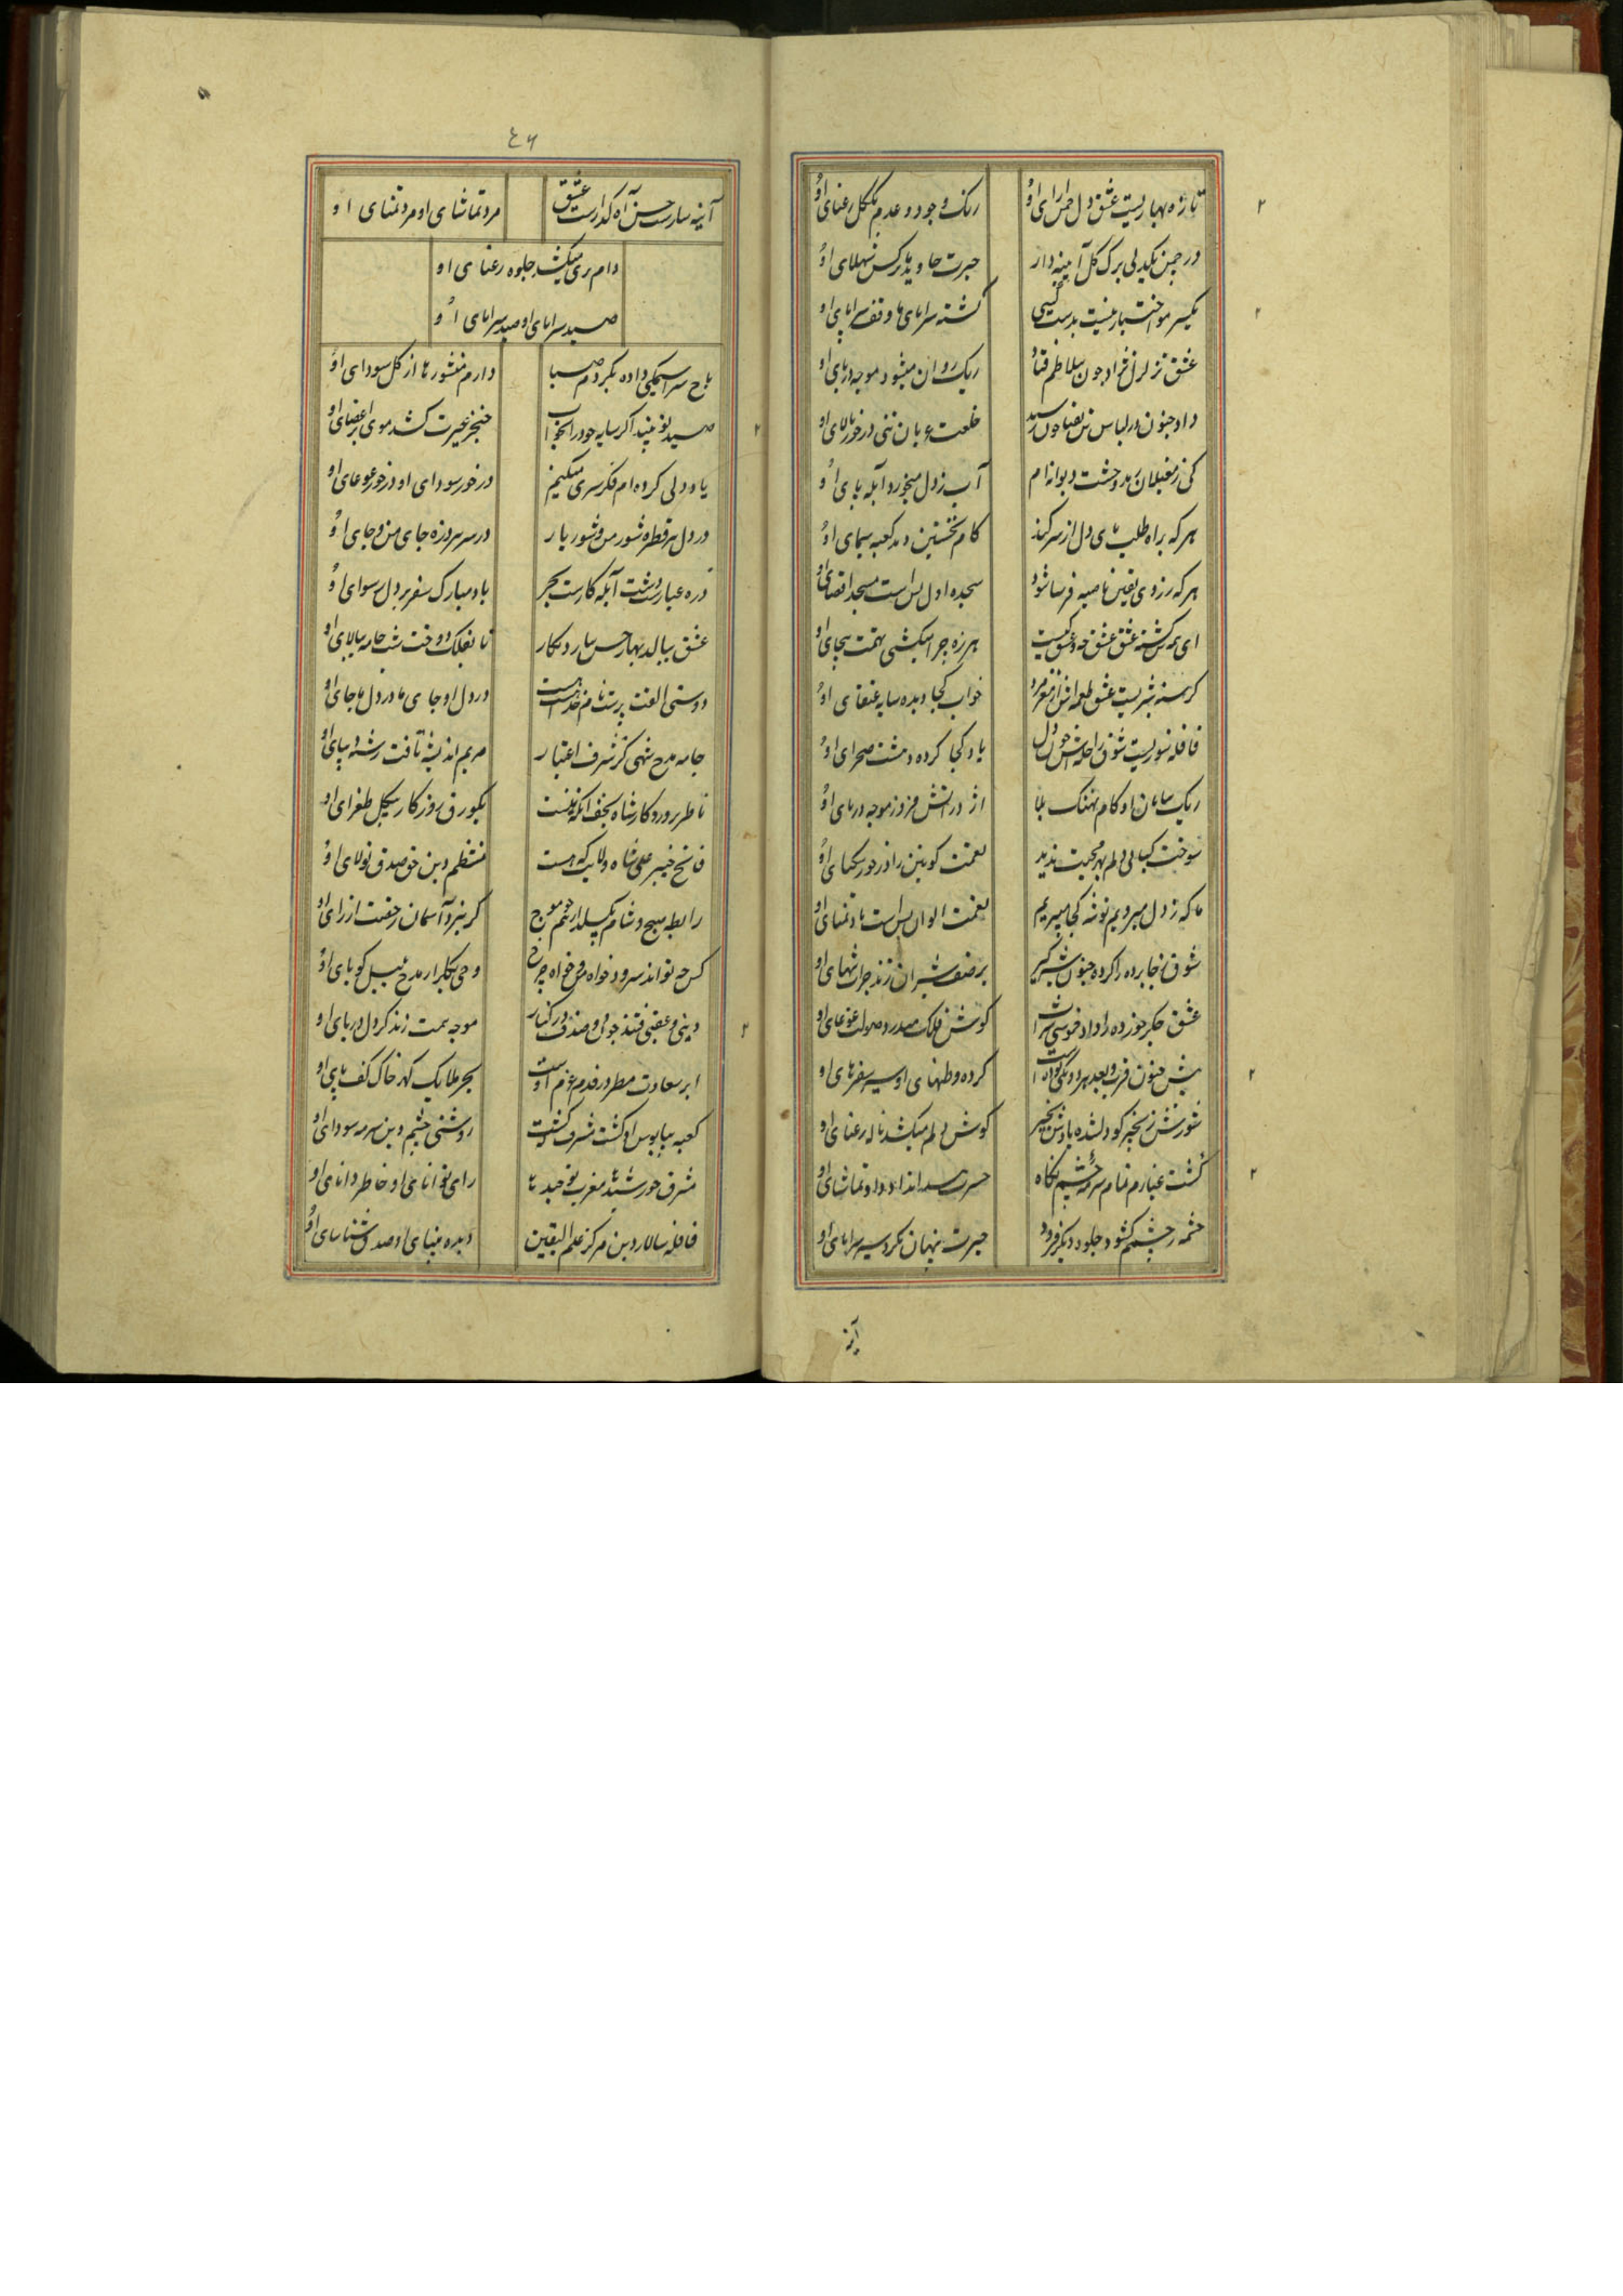 تازه بهاریست عشق دل چمن آرای او
رنک وجود و عدم یکگل رعنای او
در چمن یکدلی برک کل آینه دار
حیرت جاوید ما نرکس شهلای او
یکسر مو اختیار نیست بدست کسی
کشته سراپای ما وقف سراپای او
عشق تزلزل نژاد چون بتلاطم فتاد
ریک روان میشود موجه دریای او
داد جنون در لباس
خلعت عریان تنی در خور بالای او
کی ز مغیلان رمد وحشت دیوانه ام
آب ز دل میخورد آبله پای او
هر که براه طلب پای دل از سر کند
کام نخستین دمد کعبه سیمای او
هر که ز روی یقین ناصیه فرسا شود
سجده اول بس است مسجد اقصای او
ای همه سرکشته عشق عشق چه و عشق کیست
هرزه چرا میکشی تهمت بیجای او
کرسنه شیریست عشق طعمه اش از مغز مرد
خواب کجا دیده سایه عنقای او
قافله سوزیست شوق راحله اش خون دل
یاد کجا کرده دشت صحرای او
ریک بیابان او کام نهنک بلا
اژدر آتش فروز موجه دریای او
سوخت کبابی دلم بهر محبت پذیر
نعمت کونین را در خور یکتای او
ما که ز دل میرویم توشه کجا میبریم
نعمت الوان بس است ما و تمنای او
شوق نخابرده را کرده جنون شیرکیر
بر صف شیران زند جرات تنهای او
عشق جکر خورده را داد خموشی
کوش فلک میدرد صولت غوغای او
پیش جنون قرب و بعد هر دو یکی بوده است
کرده وطنهای او سیر سفرهای او
شورش زنجیر کو دلشده باد
کوش دلم میکشد ناله رعنای او
کشت غبارم تمام سرمه چشم نکاه
حسرت او داد تماشای او
چشمه ز چشمم کشود جلوه دیکر فزود
حیرت پنهان نکر سیر سراپای او
آینه
٤٦
آینه سازست حسن آه کدازست عشق
مرد تماشای او مرد تمنای او
دام پری میکشد جلوه رعنای او
صید سراپای او صید سراپای او
باج سراسیمکی داده بکردم صبا
دارم منشورها از کل سودای او
صید تو بیند اکر سایه خود را بخواب
خنجر غیرت کشد موی بر اعضای او
یاد دلی کرده ام فکر سری میکنم
در خور سودای او در خور غوغای او
در دل هر قطره شور من و شور یار
در سر هر ذره جای من و جای او
ذره غبارست دشت آبله کارست بحر
باد مبارک سفر بر دل رسوای او
عشق ببالد بهار حسن بیارد نکار
تا بفلک دوخت شب جامه ببالای او
دوستی الفت پرست نام خدا
در دل او جای ما در دل ما جای او
جامه مدح شهی کز شرف اعتبار
مریم اندیشه بافت رشته دیبای او
ناطر پرورد کار شاه نجف انکه نیست
یکورق روزکار بیکل طغرای او
فاتح خیبر علی شاه ولایت که هست
منتظم دین حق صدق تولای او
رابطه صبح و شام بکسلد از هم چو موج
کر نبرد آسمان رخصت از رای او
کس چه تواند سرود خواه من و خواه چرخ
وحی بتکرار مدح بلبل کویای او
دینی و عقبی فتند چون دو صدف بر کنار
موجه همت زند کر دل دریای او
ابر سعادت مطر در قدم عزم اوست
بحر ملایک کهر خاک کف پای او
کعبه بپابوس او کشت مشرف کشت
روشنی چشم دین سرمه سودای او
مشرق خورشیدها مغرب توحیدها
رای توانای او خاطر دانای او
قافله سالار دین مرکز علم الیقین
دیده بینای او صدق شناسای او